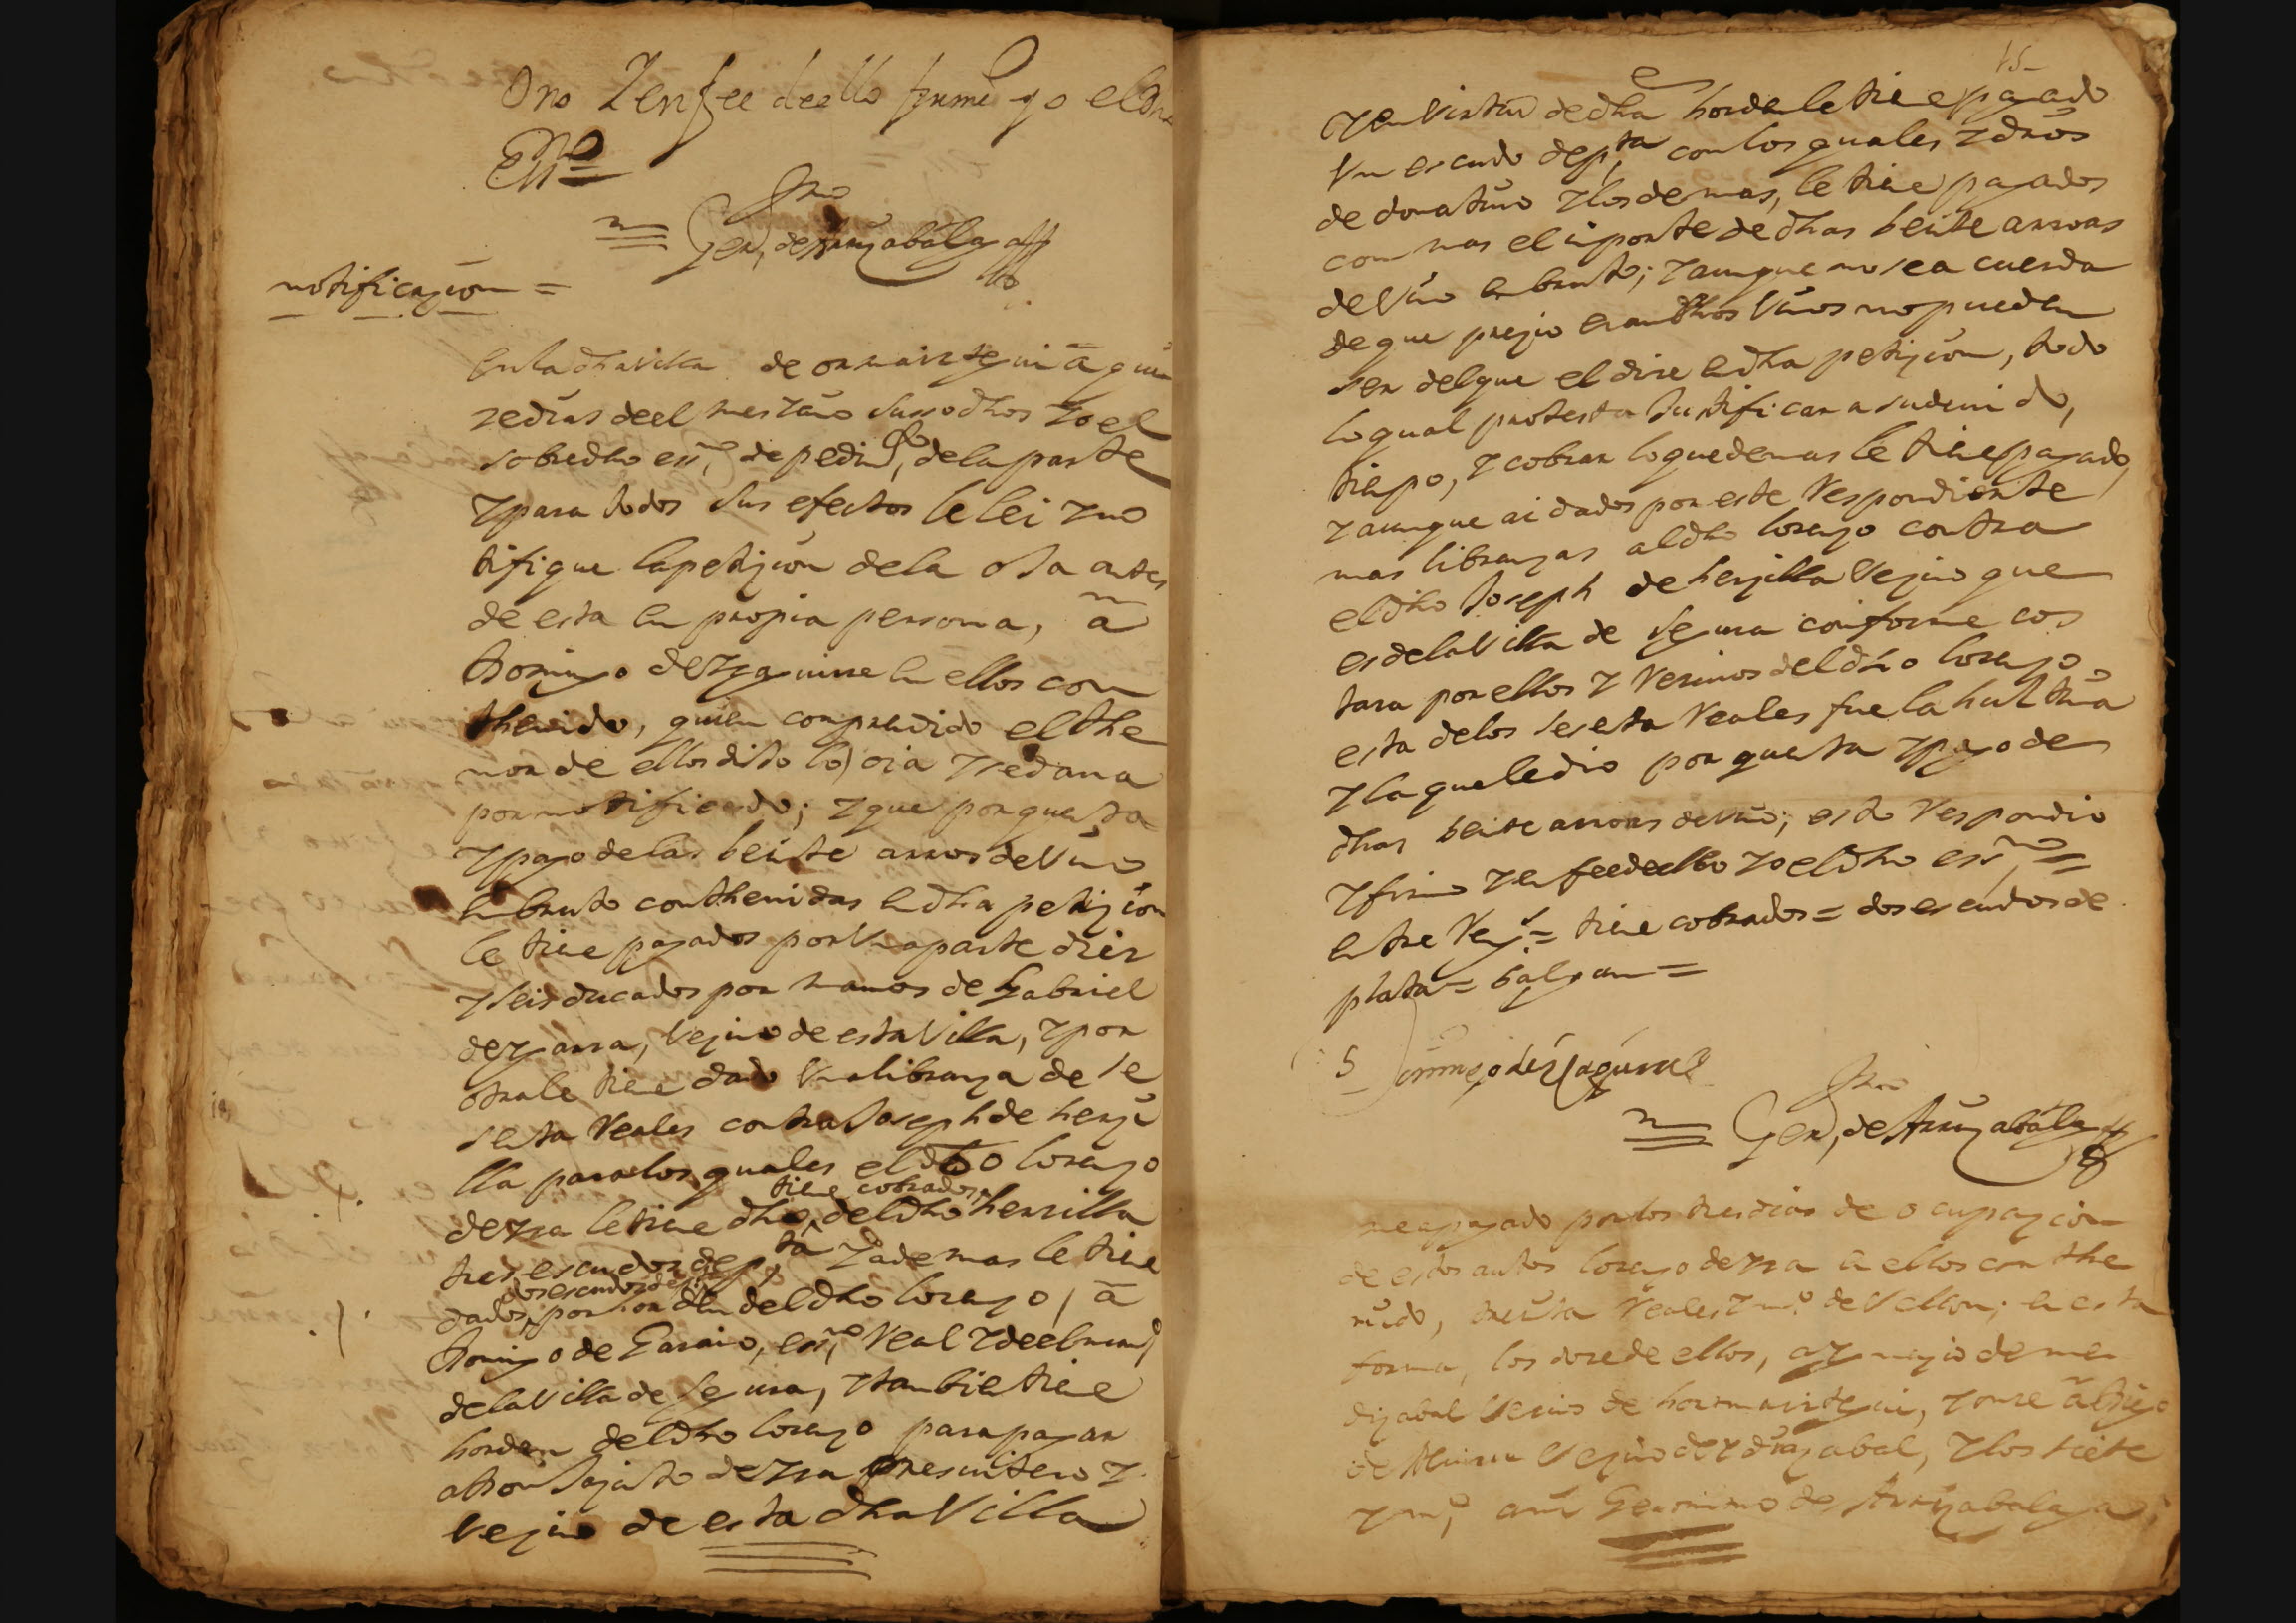 Ono Y en fee de ello firme yo el dho
Essno
Gero, de Arriçabalaga
notificaçion =
En la dha villa de ormaiztegui â quin
ze dias de el mes y año susso dhos yo el
sobredho essno, de pedimto, de la parte
y para todos sus efectos le lei y no
tifique la petiçion de la oJa antes
de esta en propia persona, â
Domingo de Yzaguirre en ellos con
thenido, quien comprendido el the
nor de ellos diJo lo oia y se dava
por notificado; y que por quenta
y pago de las beinte arroas de vino
en bruto conthenidas en dha petiçion
le tiene pagados por Una parte diez
y seis ducados por manos de Gabriel
de yçarra, Veçino de esta Villa, y por
otra le tiene dado Una librança de se
senta Reales contra Joseph de herçi
lla para los quales el dho lorenço
tiene cobrados
de yza le tiene dho, del dho herzilla
tres escudos de pta, y ademas le tiene
dos escudos de pta
dados, por horden del dho lorenço, â
Domingo de Garaio, essno, Real y de el num.o
de la Villa de Segura, y tambien tiene
horden del dho lorenço para pagar
a Don Sajusto de yza Presvitero y
Veçino de esta dha Villa
15
Y en Virtud de dha horden le tiene pagado
Un escudo de pta, con los quales y dros
de donativo y los demas, le tiene pagados
con mas el inporte de dhas beinte arroas
de Vino en bruto; y aunque no se a cuerda
de que preçio eran dhos Vinos no pueden
ser del que el dize en dha petiçion, todo
lo qual protesta Justificar a su devido,
tienpo, y cobrar lo que de mas le tiene pagado,
y aunque ai dados por este Respondiente
mas libranças al dho lorenço contra
el dho Joseph de herçilla Veçino que
es de la Villa de Segura conforme cos
tara por ellos y Recivos del dho lorenço
esta de los sesenta Reales fue la hultima
y la que le dio por quenta y pago de
dhas beinte arroas de vino; esto Respondio
y firmo y en fee de ello yo el dho essno =
entre Rengs = tiene cobrados = dos escudos de
plata = balgan =
Domingo de Yçaguirre
Gero, de Arriçabalaga
me a pagado por los tres dias de ocupaçion
de estos autos lorenço de yza en ellos conthe
nido, treinta Reales y mo de Vellon; en esta
forma, los doze de ellos, a Ygnaçio de men
diçabal Veçino de hormaiztegui, y onze â Diego
de Veçino de ydiaçabal, y los siete
y mo, a mi Geronimo de Arriçabalaga;